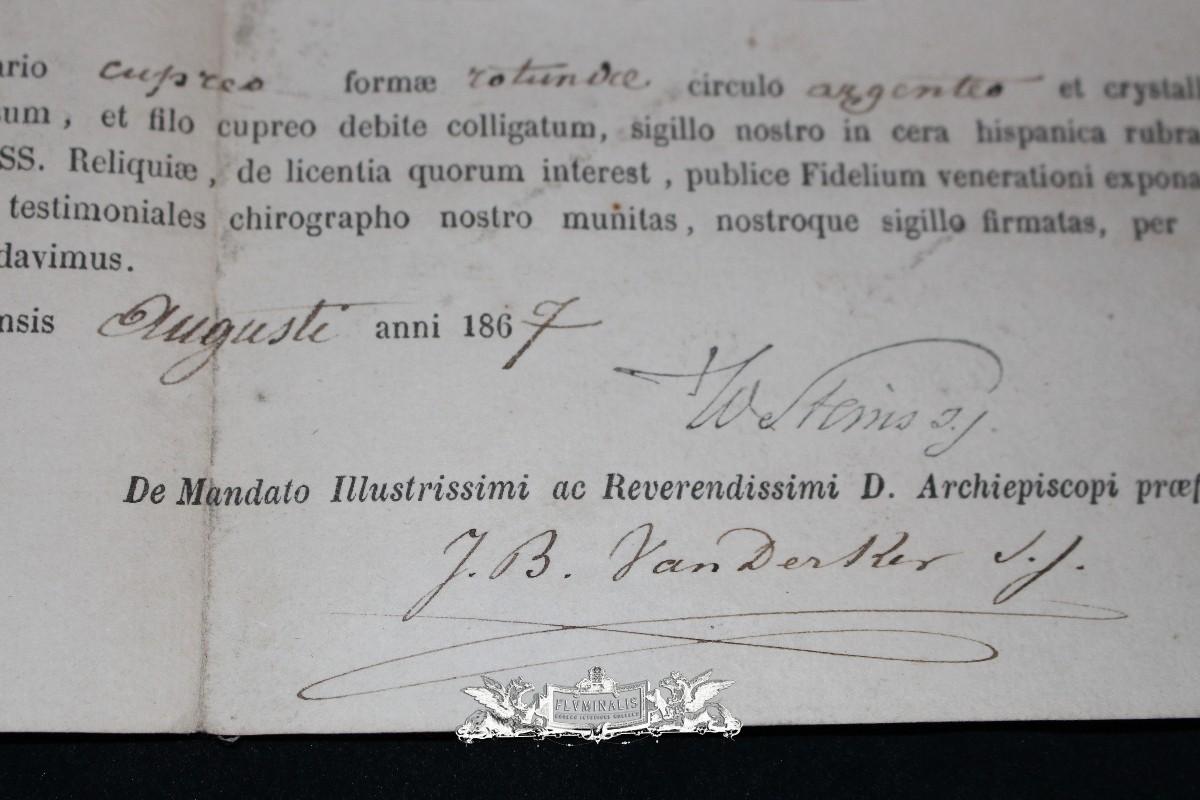 ario cupreo formæ rotundæ circulo argenteo et crystall
sum, et filo cupreo debite colligatum, sigillo nostro in cera hispanica rubra
SS. Reliquiæ, de licentia quorum interest, publice Fidelium venerationi expona
testimoniales chirographo nostro munitas, nostroque sigillo firmatas, per
davimus.
nsis Augusti anni 1867
W Steins s.j.
De Mandato Illustrissimi ac Reverendissimi D. Archiepiscopi præf
J. B. VanDerKer S.J.
FLVMINALIS